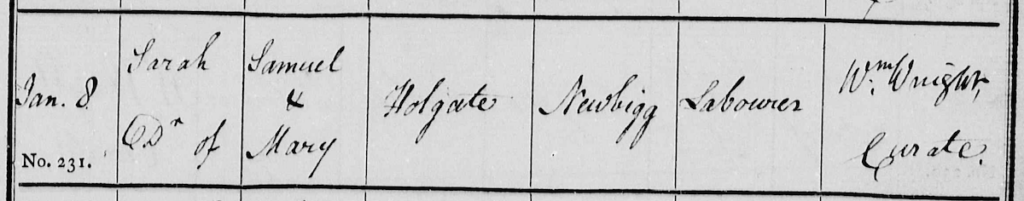 Jan. 8
No. 231.
Sarah
Dr of
Samuel
&
Mary
Holgate
Newbigg
Labourer
Wm. Wright,
Curate.